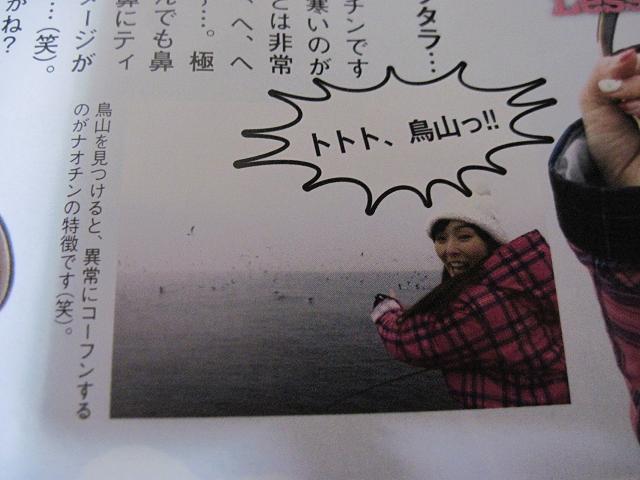 Less
タラ…
チンです
寒いのが
とは非常
、へ、へ
…。極
んでも鼻
鼻にティ
メージが
…(笑)。
がね?
トトト、鳥山っ!!
鳥山を見つけると、異常にコーフンする
のがナオチンの特徴です(笑)。